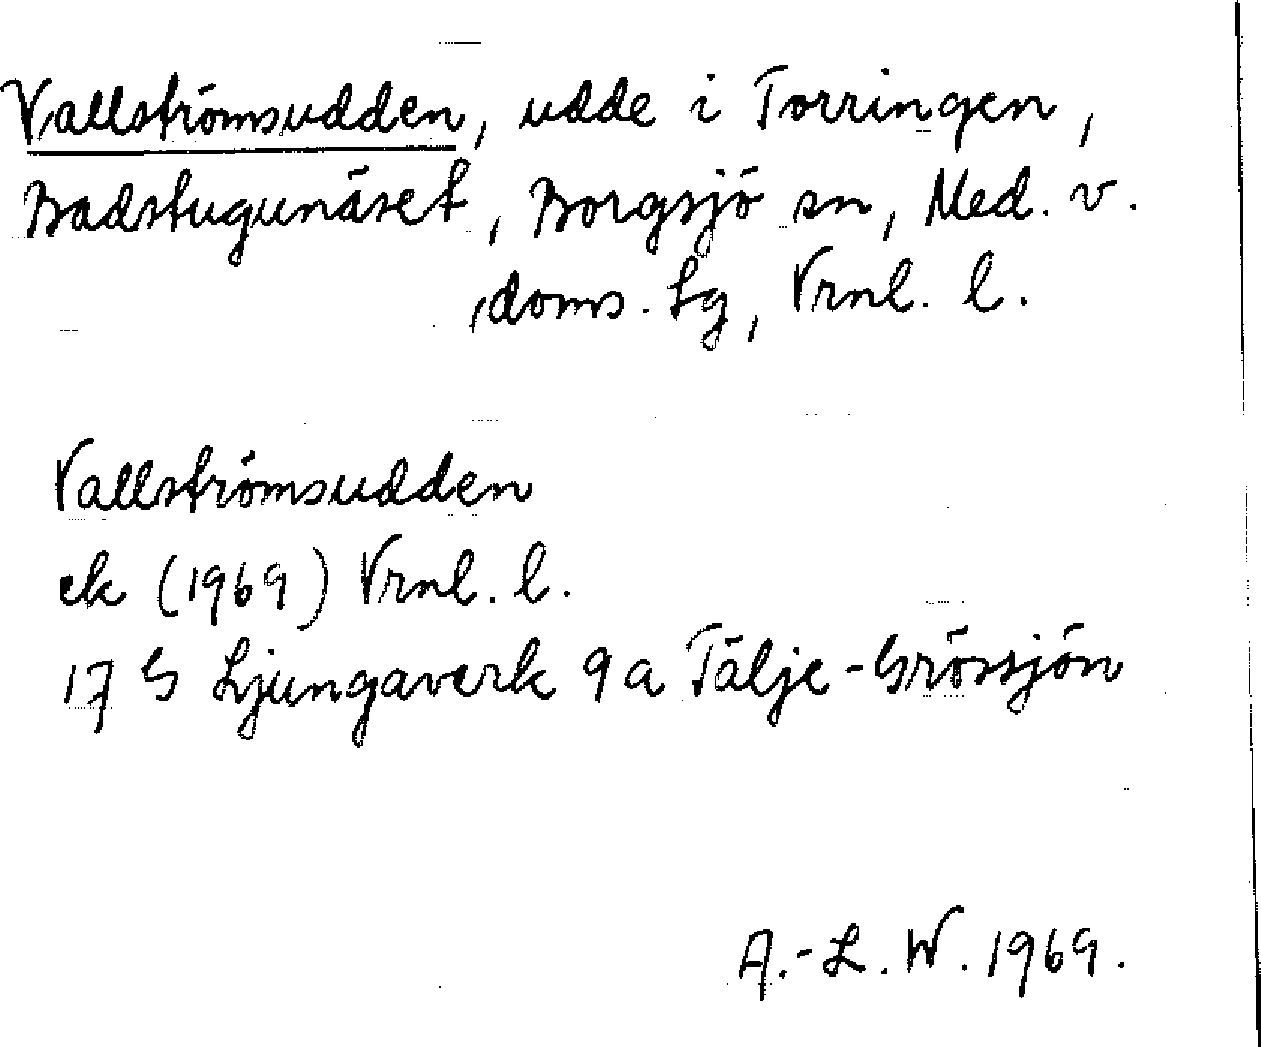 Vallströmsudden, udde i Torringen,
Badstugunäset, Borgsjö sn, Med. v.
doms. Lg, Vrnl. l.
Vallströmsudden
ek (1969) Vrnl. l.
17 G Ljungaverk 9a Tälje-Grössjön
A.-L. W. 1969.